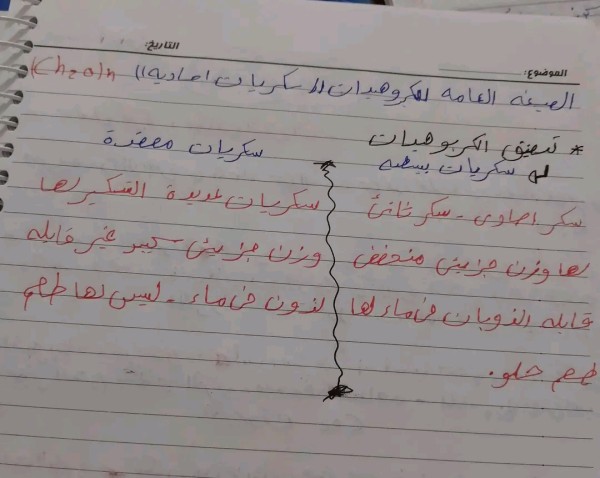 الموضوع: التاريخ:
الصيغه العامه للكربوهيدرات (( سكريات احاديه )) (Ch2o)n
* تصنيف الكربوهيدرات
لـ سكريات بسيطه
سكريات معقدة
سكر احادي - سكر ثنائي
لها وزن جزيئي منخفض
قابله الذوبان في ماء لها
طعم حلو.
سكريات عديدة التسكير لها
وزن جزيئي كبير غير قابله
لذوبان في ماء - ليس لها طعم